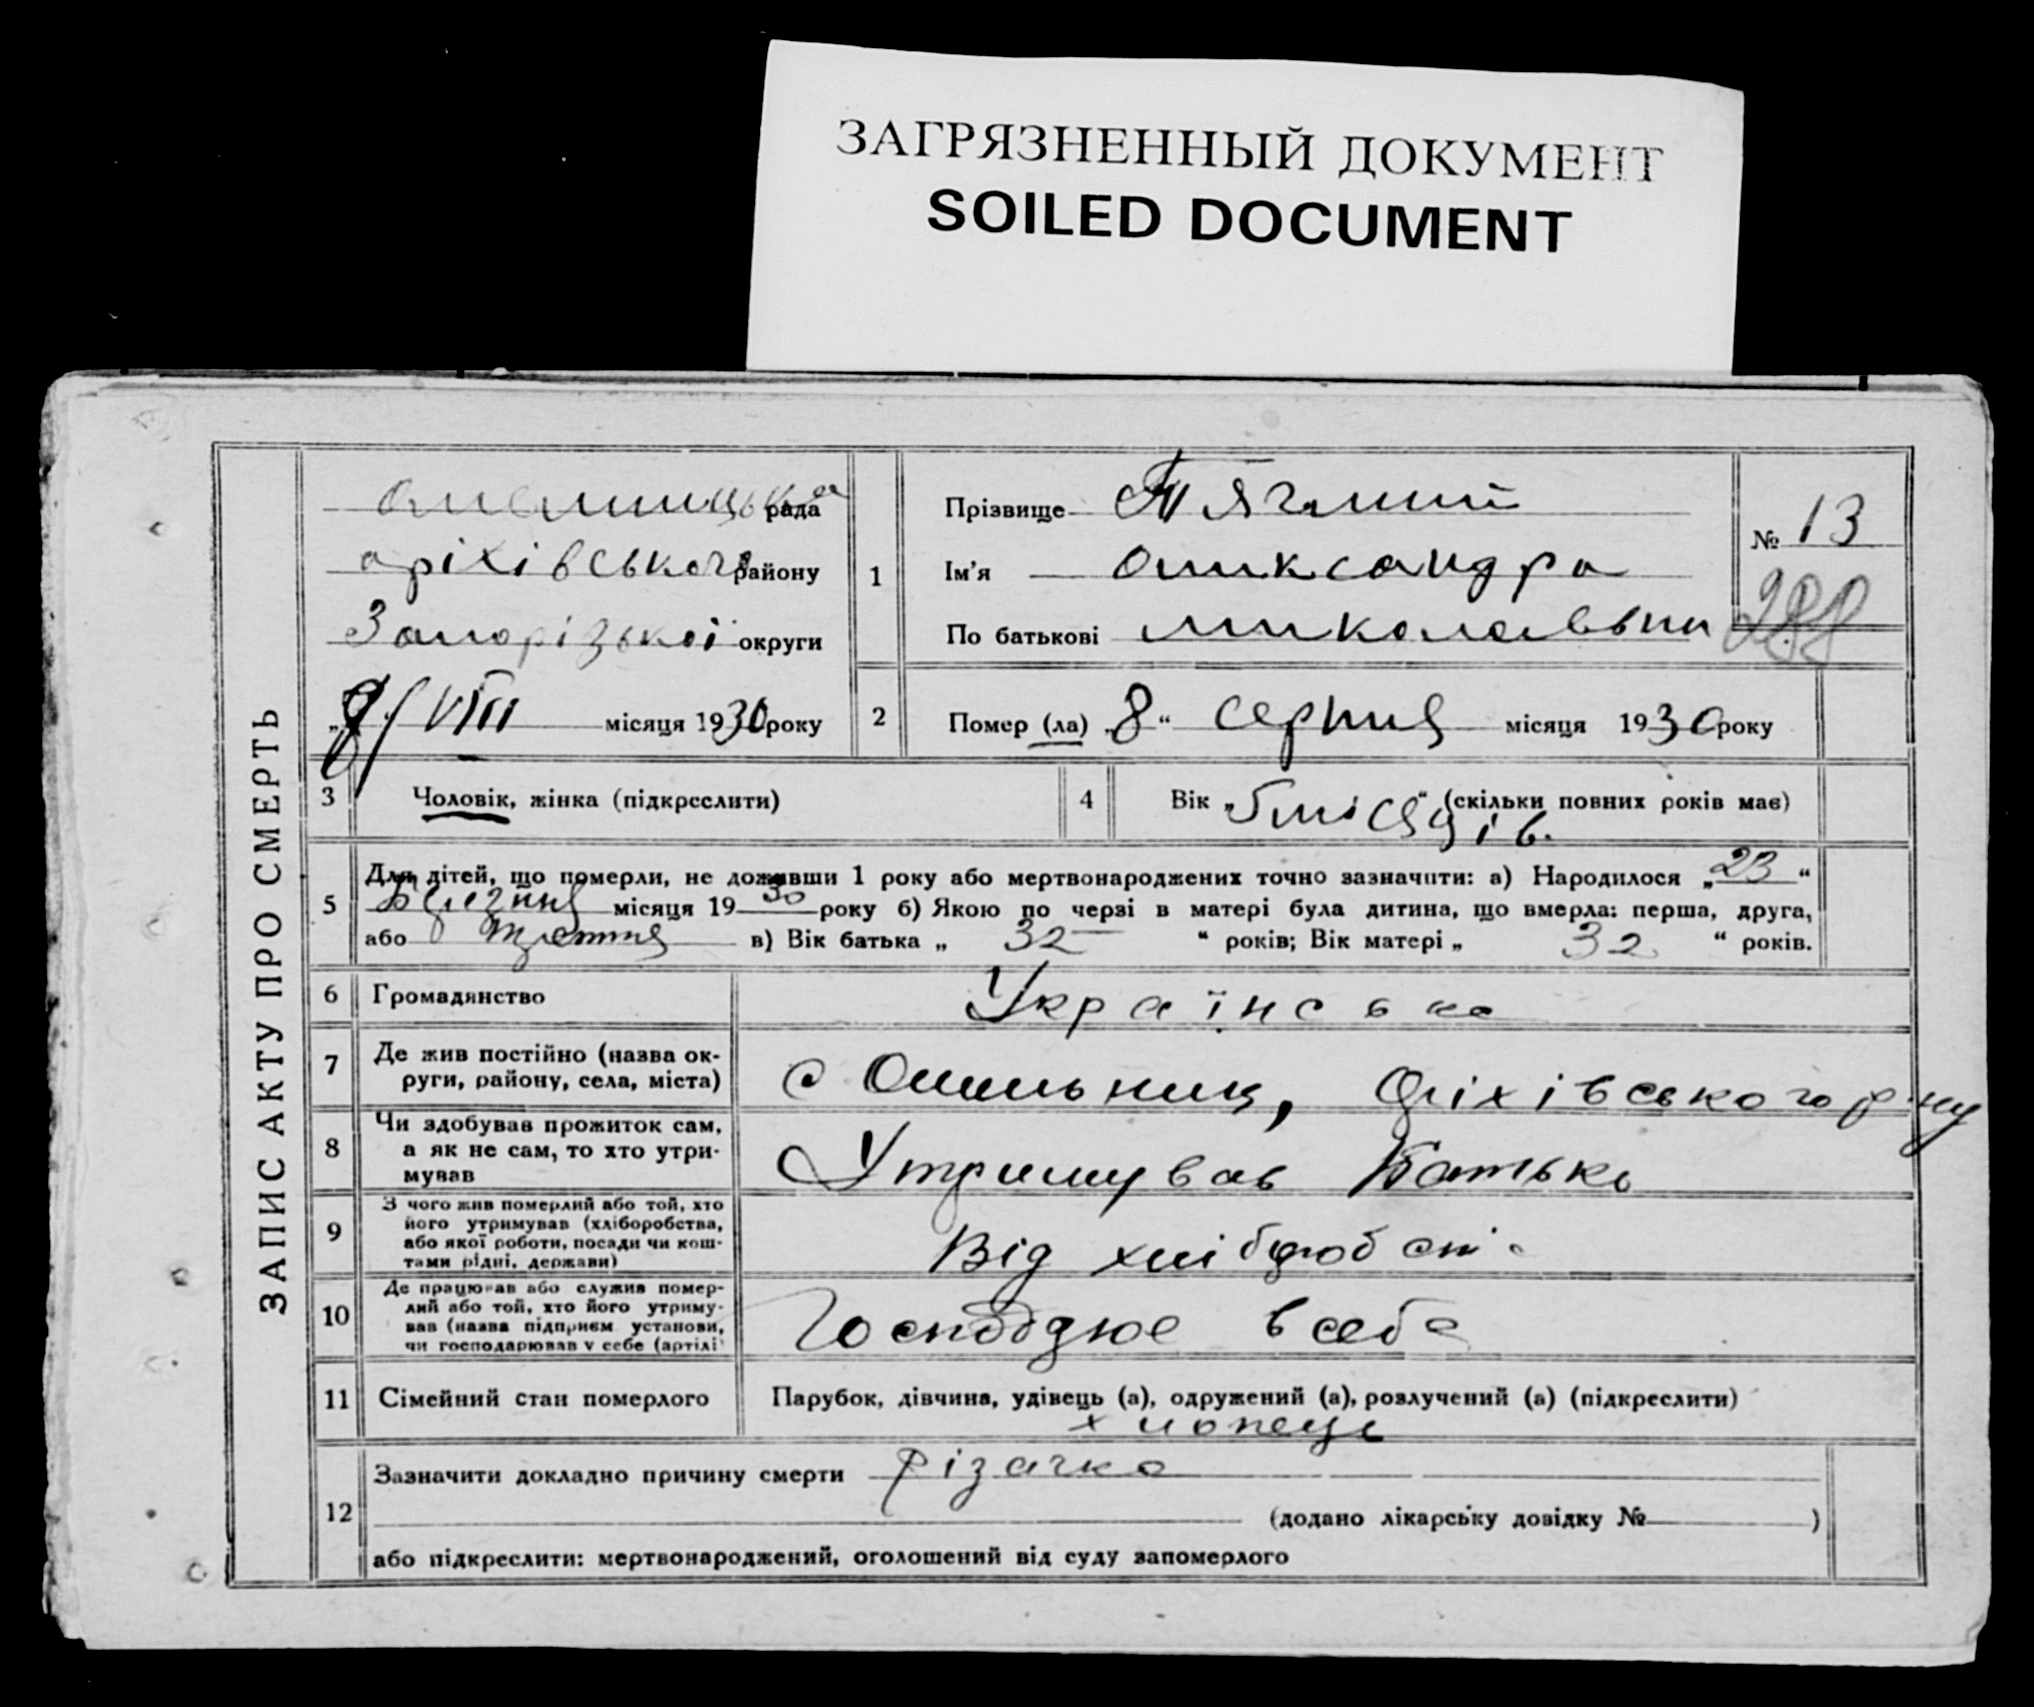 ЗАГРЯЗНЕННЫЙ ДОКУМЕНТ
SOILED DOCUMENT
ЗАПИС АКТУ ПРО СМЕРТЬ
рада
оріхівського району
Запорізької округи
VIII місяця 1930 року
1
Прізвище Тяглий
Ім’я Олександра
По батькові миколаевьич
№ 13
288
2
Помер (ла) „8“ серпня місяця 1930 року
3
Чоловік, жінка (підкреслити)
4
Вік „5 місяців.“ (скільки повних років має)
5
Для дітей, що померли, не доживши 1 року або мертвонароджених точно зазначити: а) Народилося „23“
місяця 1930 року б) Якою по черзі в матері була дитина, що вмерла: перша, друга,
або третя в) Вік батька „32“ років; Вік матері „32“ років.
6
Громадянство
Українська
7
Де жив постійно (назва ок-
руги, району, села, міста)
с Омельник, Оріхівського р-ну
8
Чи здобував прожиток сам,
а як не сам, то хто утри-
мував
Утримував Батько
9
З чого жив померлий або той, хто
його утримував (хліборобства,
або якої роботи, посади чи кош-
тами рідні, держави)
Від хліборобст
10
Де працював або служив помер-
лий або той, хто його утриму-
вав (назва підприєм установи,
чи господарював у себе (артілі
в себе
11
Сімейний стан померлого
Парубок, дівчина, удівець (а), одружений (а), розлучений (а) (підкреслити)
хлопець
12
Зазначити докладно причину смерти різачка
(додано лікарську довідку № )
або підкреслити: мертвонароджений, оголошений від суду запомерлого